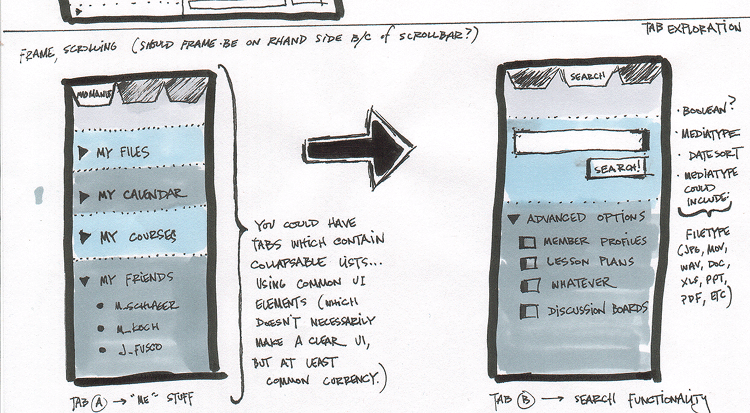 TAB EXPLORATION
FRAME, SCROLLING (SHOULD FRAME BE ON RHAND SIDE B/C of SCROLLBAR?)
MY FILES
MY CALENDAR
MY COURSES
MY FRIENDS
• M_SCHLAGER
• M_KOCH
• J_FUSCO
TAB A → "ME" STUFF
YOU COULD HAVE
TABS WHICH CONTAIN
COLLAPSABLE LISTS...
USING COMMON UI
ELEMENTS (WHICH
DOESN'T NECESSARILY
MAKE A CLEAR UI,
BUT AT LEAST
COMMON CURRENCY.)
SEARCH
SEARCH!
ADVANCED OPTIONS
MEMBER PROFILES
LESSON PLANS
WHATEVER
DISCUSSION BOARDS
TAB B → SEARCH FUNCTIONALITY
• BOOLEAN?
• MEDIATYPE
• DATESORT
• MEDIATYPE
COULD
INCLUDE:
FILETYPE
(JPG, MOV,
WAV, DOC,
XLS, PPT,
PDF, ETC)